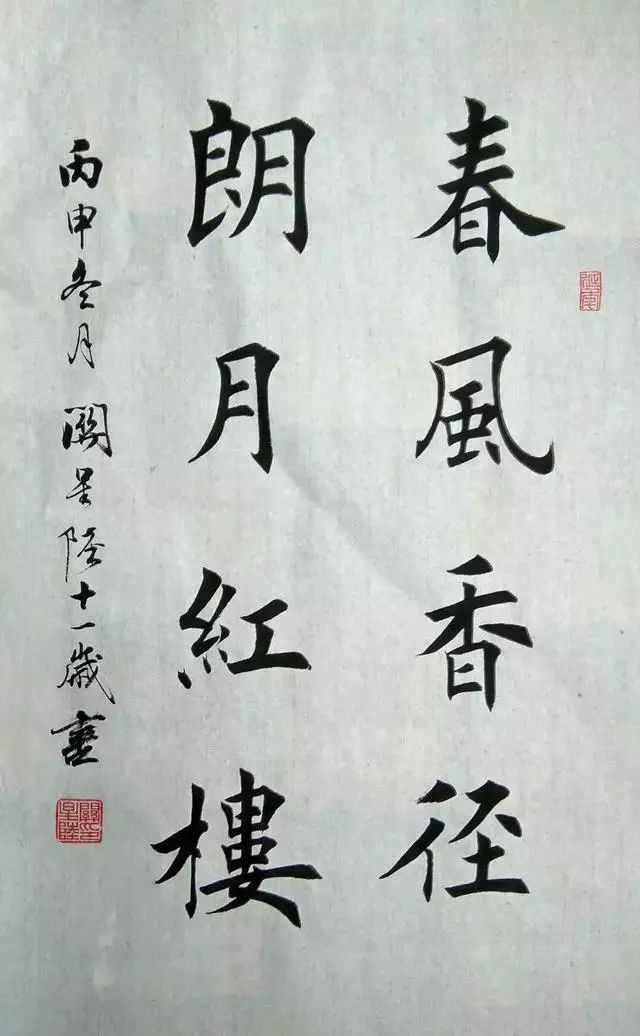 春風香径
朗月紅樓
丙申冬月關星陸十一歲書